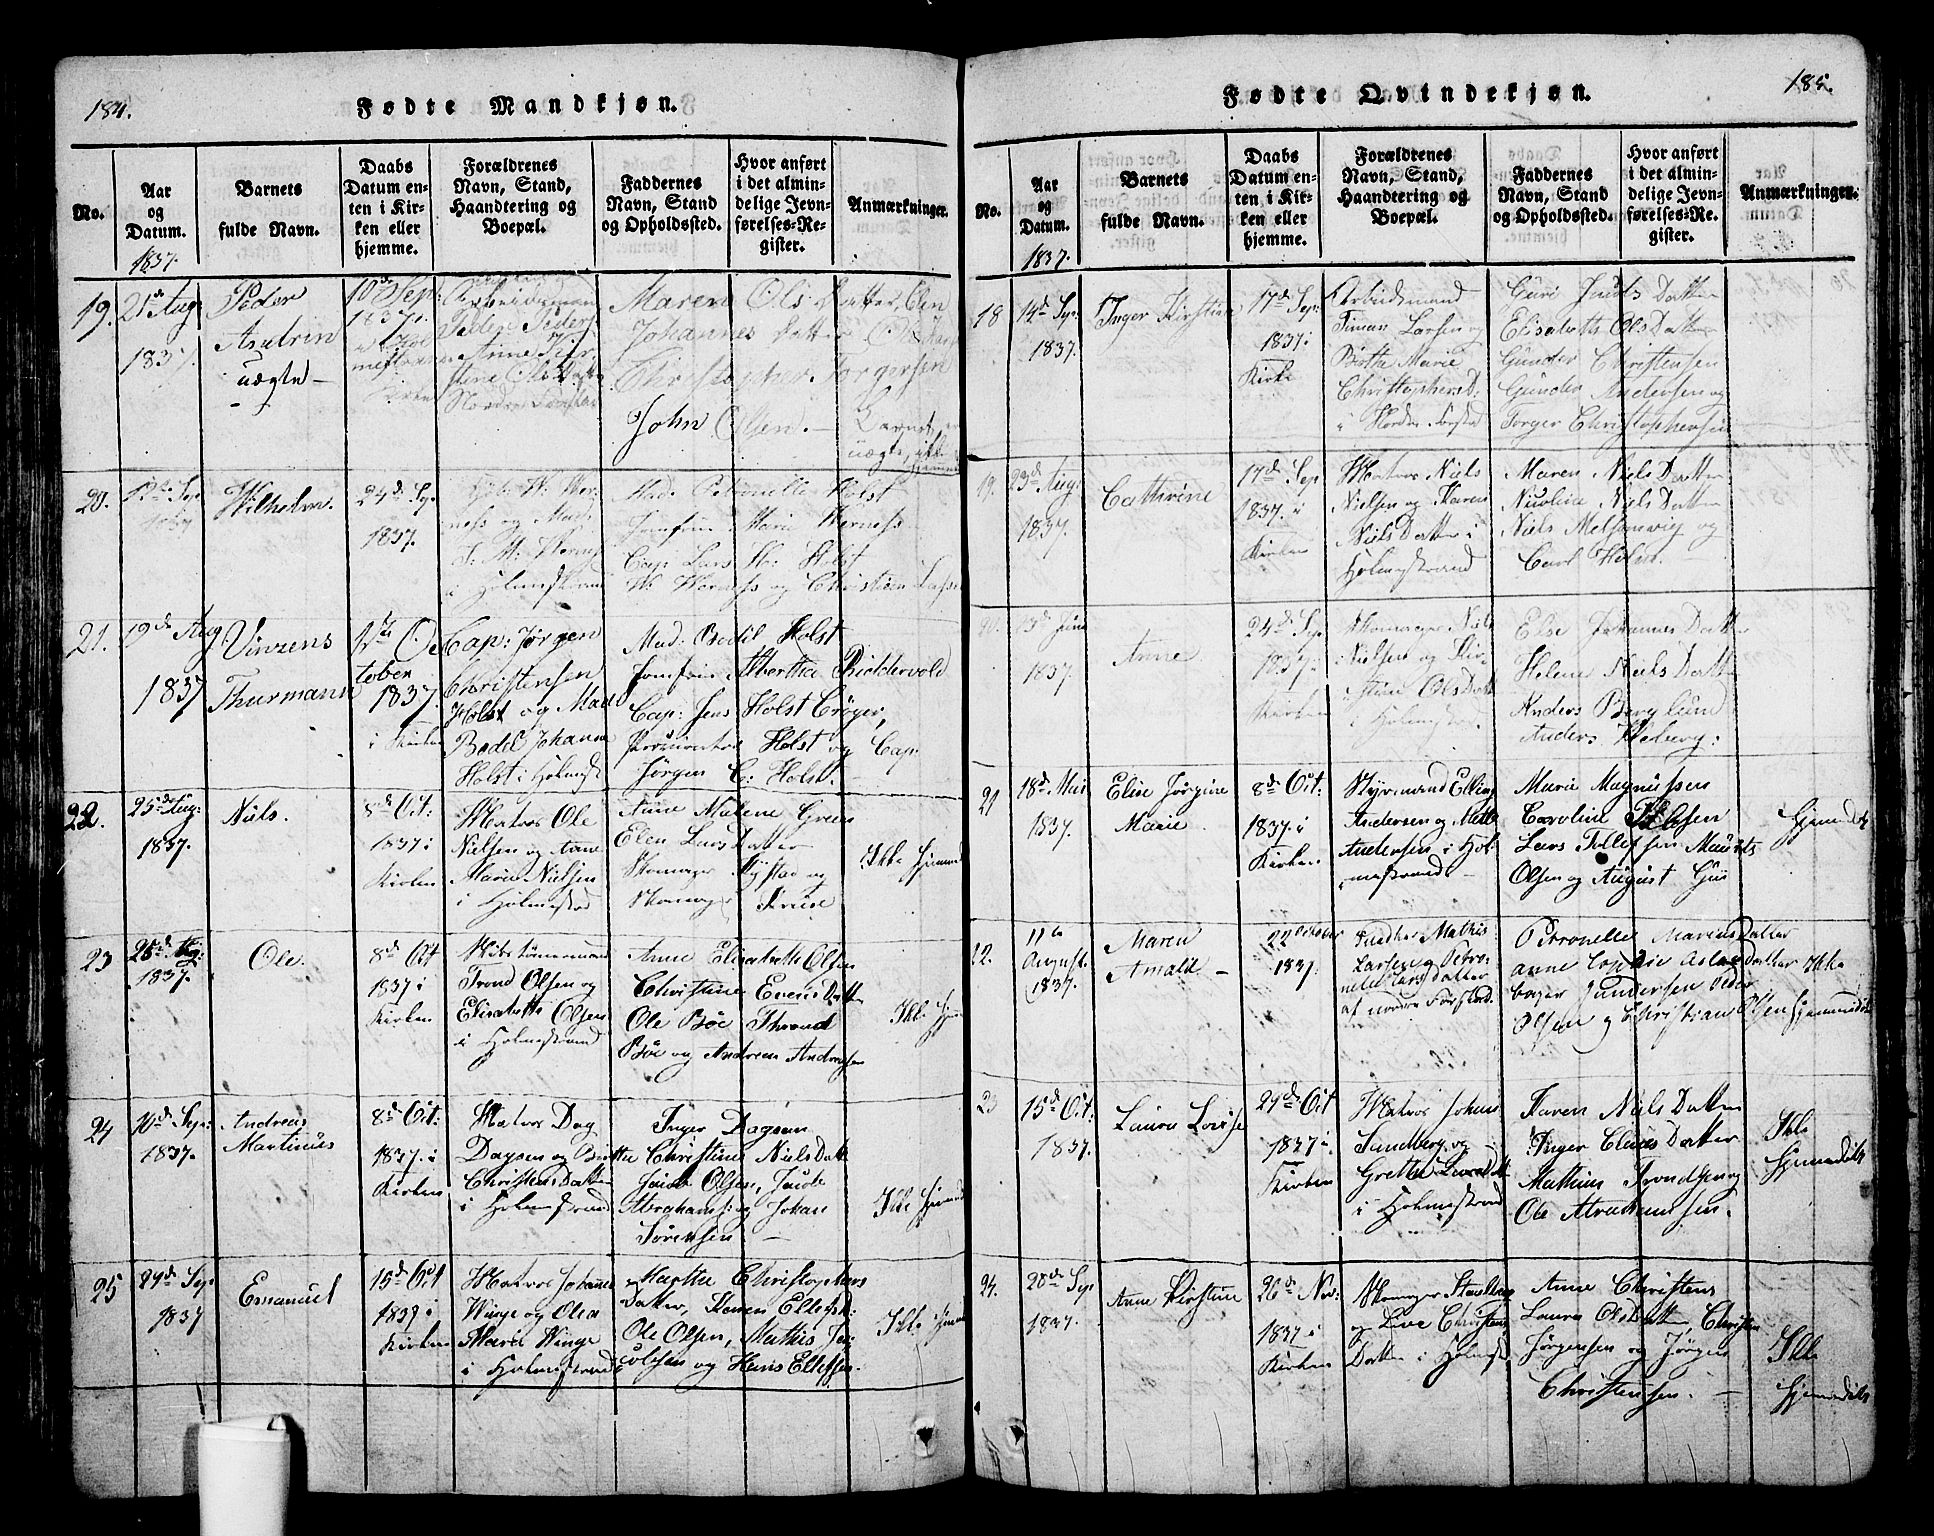 184.
Fødte Mandkjøn.
No.
Aar
og
Datum.
Barnets
fulde Navn.
Daabs
Datum en-
ten i Kir-
ken eller
hjemme.
Forældrenes
Navn, Stand,
Haandtering og
Boepæl.
Faddernes
Navn, Stand
og Opholdssted.
Hvor anført
i det almin-
delige Jevn-
førelses-Re-
gister.
Anmærkninger.
1837.
19.
21de Aug
1837.
Peder
uægte
10de Sep:
1837
Arbeidsmand
Peder Peders:
Anne Kir-
stine Olsdatter
Nordre
Maren Ols Datter,
Johannes Datter
Christopher Torgersen
John Olsen.
Barnet er
uægte, ikke
hjemmed
20.
Wilhelm.
24de Sep.
1837.
ness og Mad.
i Holmestrand
Mad. Petronelle Holst
Jomfrue Marie Werness
Cap: Lars H: Holst
W. Werness og Christian
21.
19de Aug
1837
Vinzens
Thurmann
1ste Oc
tober
1837
i Kirken
Cap: Jørgen
Christensen
Holst og Mad
Bodel Johanne
Holst i Holmest
Mad: Bodil Holst
Jomfrue Albertha Riddervold
Cap: Jens Holst Crøger,
Holst og Cap:
Jørgen C: Holst.
22.
25de Aug:
1837.
Niels.
8de Oct:
1837 i
Kirken
Matros Ole
Nielsen og Anne
Marie Nielsen
i Holmestrand
Anne Malene Green
Elen Lars Datter
Skomager Nystad og
Skomager Kruse
Ikke Hjemmed
23
25de Aug:
1837.
Ole.
8de Oct
1837 i
Kirken
Skibstømmermand
Trond Olsen og
Elisabeth Olsen
i Holmestrand
Anne Elisabeth Olsen
Christine Evens Datter
Ole Böe Thrond
Böe og Andreas Andresen
Ikke Hjemmed
24
10de Sep:
1837.
Andreas
Martinus
8de Oct:
1837. i
Kirken
Matros Dag
Dagsen og Birthe
Christens Datter
i Holmestrand
Inger Dagsen
Christine Niels Datt
Jacob Olsen, Jacob
Abrahams: og Johan
Sörensen
Ikke Hjemmed
25
24de Sep
1837
Emanuel
15de Oct
1837 i
Kirken
Matros Johannes
Winge og Olea
Maria Winge
i Holmestrand
Marthe Christophers
Datter, Karen Ellefsd:
Ole Olsen, Mathis Ja-
cobsen og Hans Ellefsen.
Ikke Hjemmed
185.
Fødte Qvindekjøn.
No.
Aar
og
Datum.
Barnets
fulde Navn.
Daabs
Datum en-
ten i Kir-
ken eller
hjemme.
Forældrenes
Navn, Stand,
Haandtering og
Boepæl.
Faddernes
Navn, Stand
og Opholdssted.
Hvor anført
i det almin-
delige Jevn-
førelses-Re-
gister.
Anmærkninger.
1837.
18
14de Sep:
1837.
Inger Kirstine
17de Sep:
1837 i
Kirke
Arbeidsmand
Timan Larsen og
Birthe Marie
Christophers D:
i Nordre Forstad
Guri Jacobs Datter
Elisabeth Ols Datter
Gunder Christensen
Gunder Andersen og
Torger Christophersen
19.
23de Aug:
1837.
Cathrine
17de Sep
1837. i
Kirken
Matros Niels
Nielsen og Karen
Niels Datter i
Holmestrand
Maren Niels Datter
Nicoline Niels Datter
Niels Melsomvig og
Carl Holm.
20.
13de Juni
1837.
Anne
24de Sep
1837.
Kirken
Skomager Niels
Nielsen og Kir
stine Ols Datt
i Holmestrand
Else Johannes Datter
Helene Niels Datter
Anders Berglund
Anders Wiborg:
21
18de Mai
1837.
Elise Jørgine
Marie
8de Oct:
1837. i
Kirken
Styrmand Elling
Andersen og Mette
Andersen i Hol
mestrand
Marie Magnussen
Caroline
Lars Tollefsen Maurits
Olsen og August
Hjemmedøbt
22.
11te
August
1837.
Maren
Amalie
22 October
1837.
Snedker Mathis
Larsen og Petro-
nelle Lars Datter
af nordre Forstad.
Petronelle Marius Datter
anne Sophie Aslas Datter Ikke
Gundersen Peder
Olsen og Christian Olsen Hjemmedøbt
23
15de Oct:
1837.
Laura Lovise
29de Oct
1837 i
Kirken
Matros Johan
Sundberg og
Grethe
i Holmestrand
Karen Niels Datter
Inger Claus Datter
Mathias Trondsen og
Ole Abrahamsen.
Ikke
Hjemmedøbt
24.
20de Sep
1837.
Anne Kirstine
26de Nov:
1837 i
Kirken
Skomager
og Live Christens
Datter i Holmest
Anne Christens
Laura Ols Datter, Christen
Jørgensen og Jørgen
Christensen.
Ikke
Hjemmedøbt